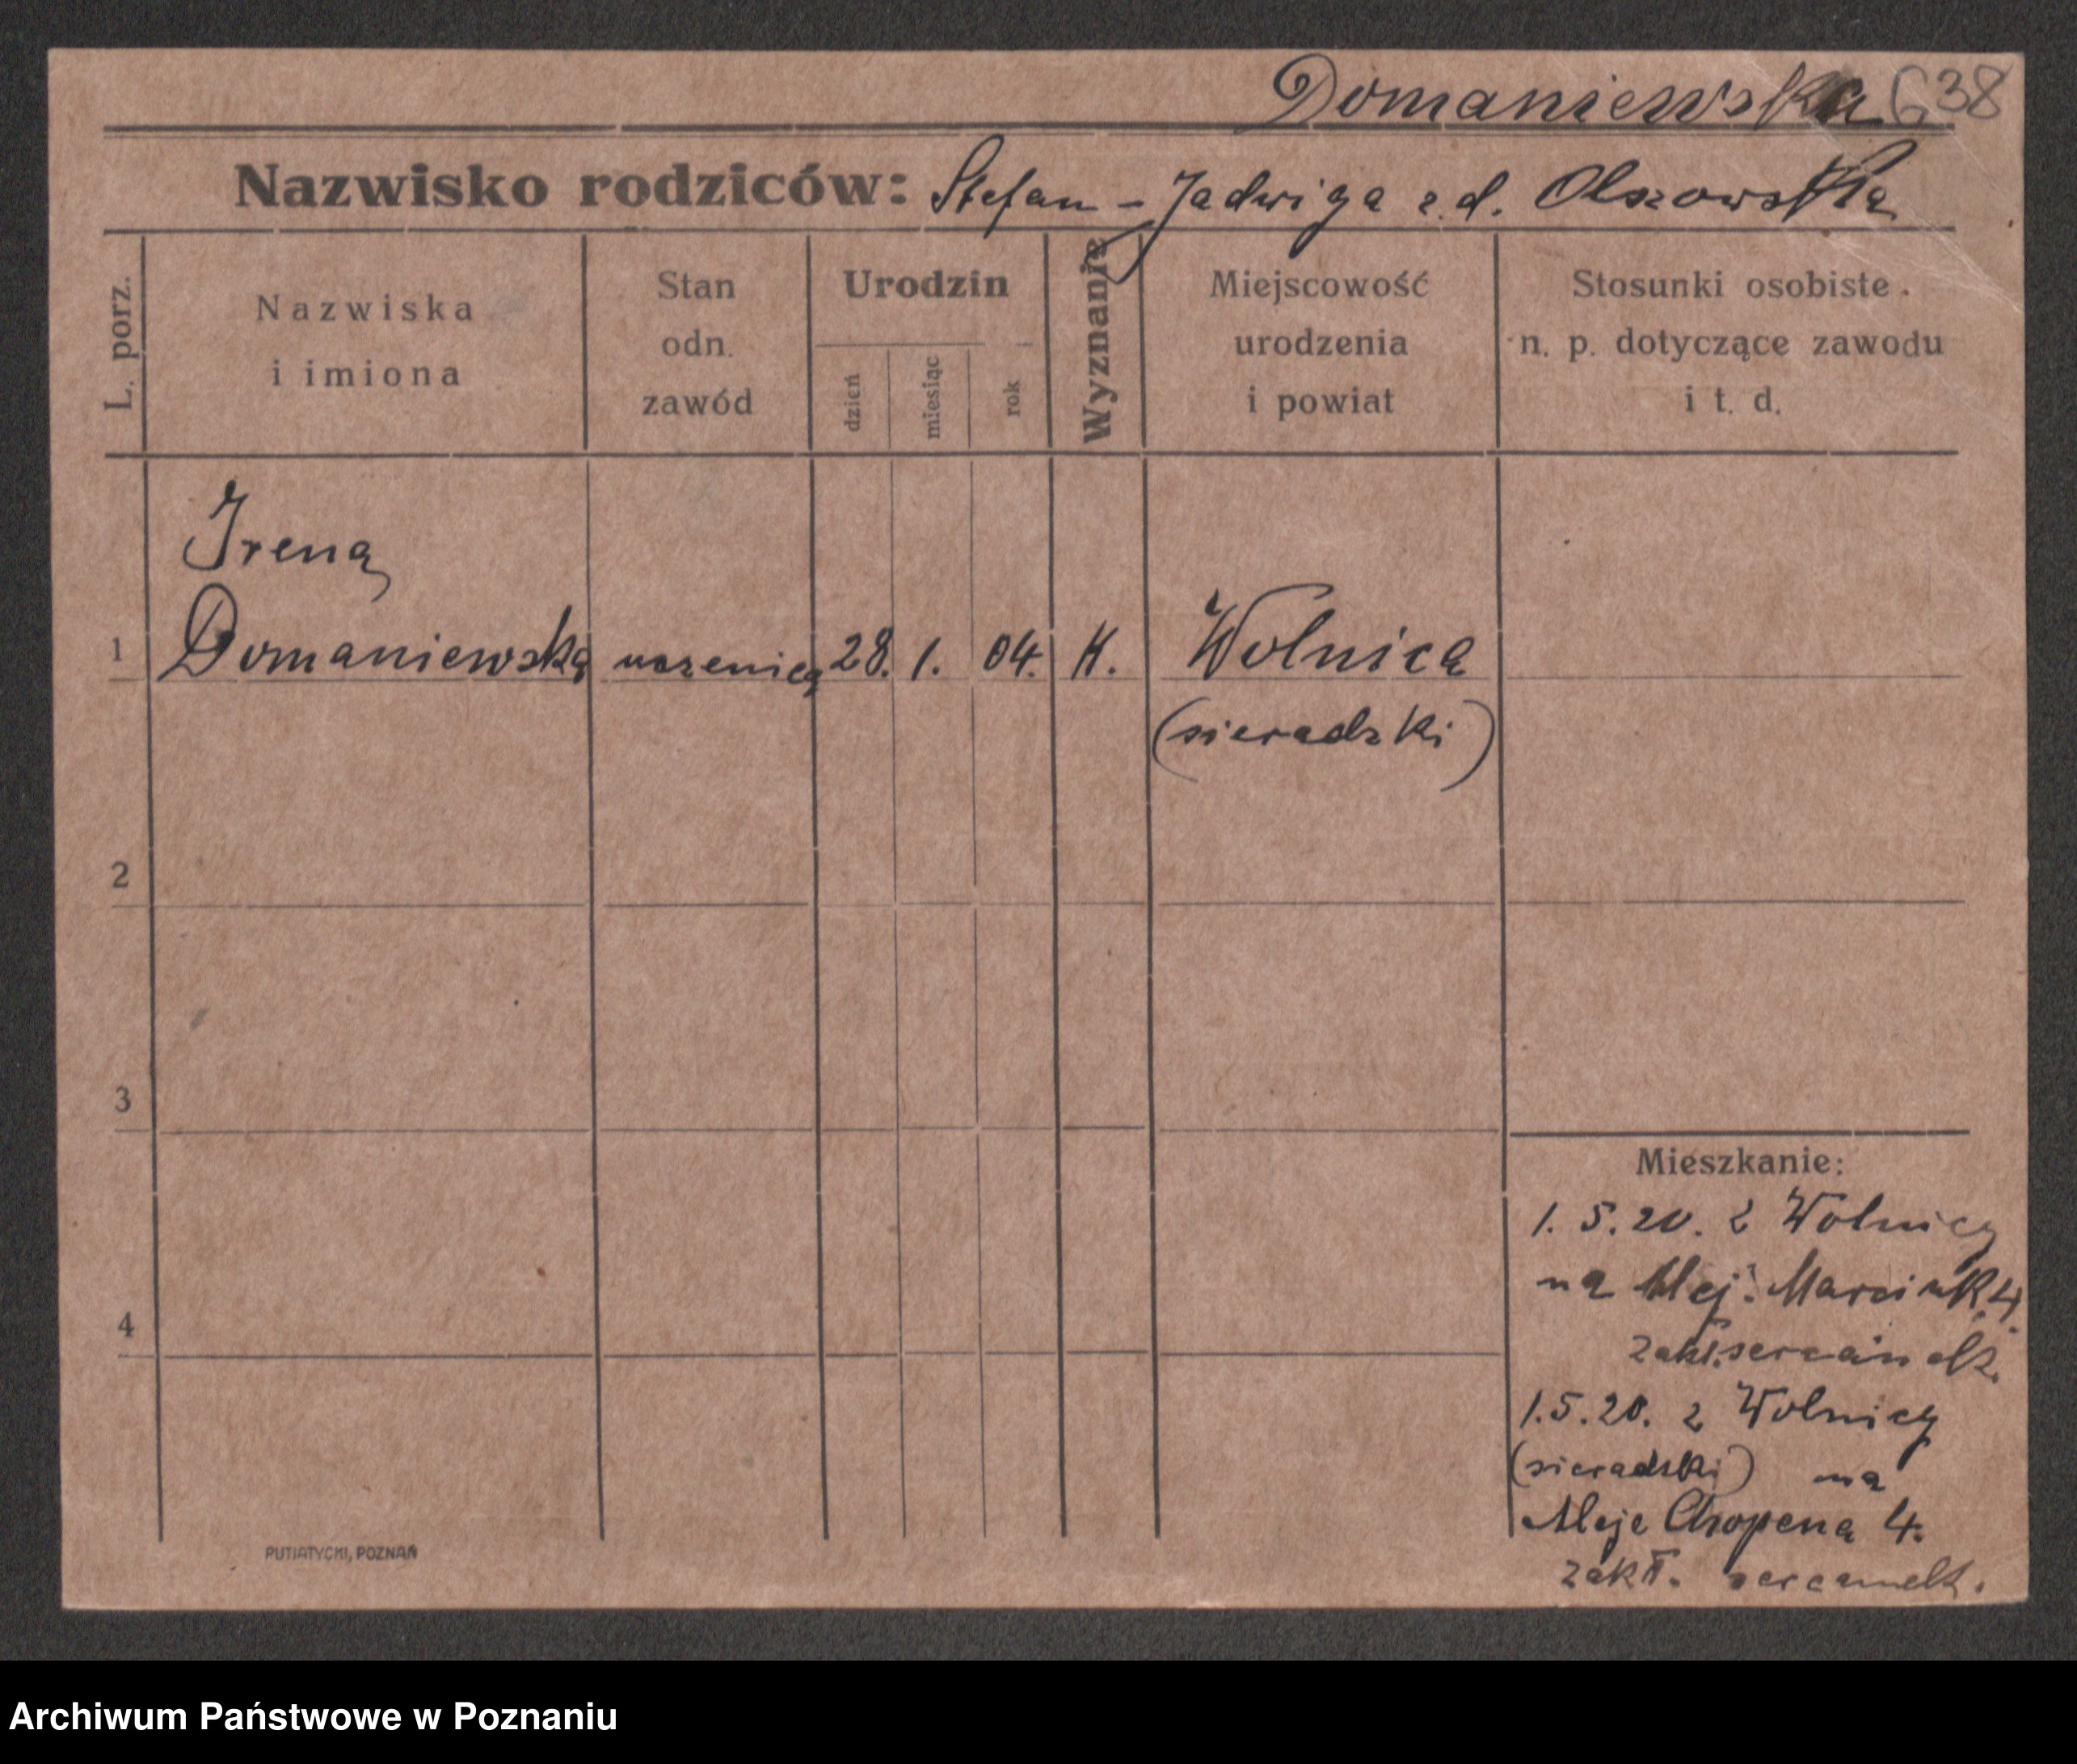 Domaniewska 638
Nazwisko rodziców: Stefan – Jadwiga z.d. Olszowska
L. porz.
Nazwiska
i imiona
Stan
odn.
zawód
Urodzin
dzień
miesiąc
rok
Wyznanie
Miejscowość
urodzenia
i powiat
Stosunki osobiste.
n. p. dotyczące zawodu
i t. d.
Irena
1 Domaniewska uczenica 28. 1. 04. K. Wolnica
(sieradzki)
2
3
4
Mieszkanie:
1. 5. 20. z Wolnicy
na Alej. Marcink. 4.
zakł.
1. 5. 20. z Wolnicy
(sieradzki) na
Aleje Chopena 4.
zakł.
PUTIATYCKI, POZNAŃ
Archiwum Państwowe w Poznaniu